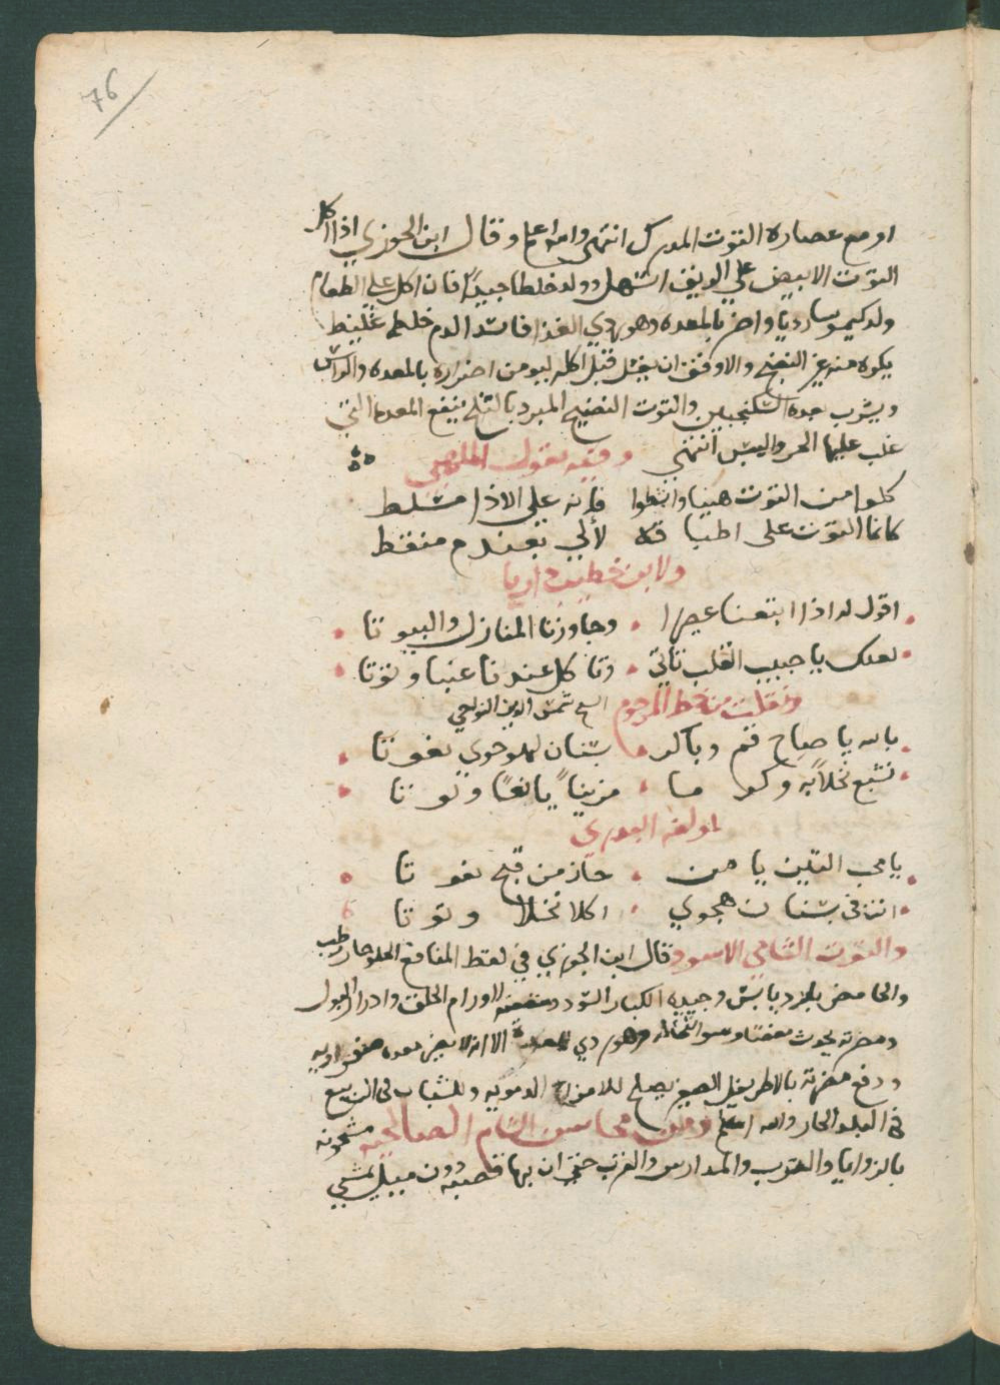 76
او مع عصارة التوت المدرك انتهى والله اعلم وقال ابن الجوزي اذا اكل
التوت الابيض علي الريق اسهل وولد خلطا جيدًا فان اكل علي الطعام
ولد كيموسا رديا واضر بالمعده وهو ردي الغذا فاسد الدم خلطه غليظ
يكره منه غير النضج والاوفق ان يغسل قبل اكله ليومن اضراره بالمعده والراس
ويشرب بعده السكنجبين والتوت النضيج المبرد بالثلج ينفع المعده التي
غلب عليها الحر واليبس انتهى وفيه يقول
كلوا من التوت هنيا وابشطوا فانه علي الاذا مسلط
كانما التوت على اطباقه لألي بعندم منقط
ولابن خطيب داريا
اقول له اذا ابتعنا عصيرا وجاوزنا المنازل والبيوتا
لعلك يا حبيب القلب تاتي وتاكل عندنا عنبا وتوتا
ونقلت من خط المرحوم الشيخ شمس الدين
بالله يا صاح قم وباكر بستان لهو حوي نعوتا
تشبع نخلاً به وكرما مزيناً يانعًا وتوتا
لمولفه البدري
يا محب التين يا من حاز من قبح نعوتا
انت في بستان هجوي اكلا نخلا وتوتا
والتوت الشامي الاسود قال ابن الجوزي في لقط المنافع الحلو حار رطب
والحامض بارد يابس وجيده الكبار السود منفعته لاورام الحلق وادرار البول
ومضرته يحدث مغصا وهو ردي للمعدة الا انه لا يضر معده صفراويه
ودفع مضرته بالاطريفل الصغير يصلح للامزاج الدمويه وللشباب في الربيع
في البلد الحار والله اعلم ومن محاسن الشام الصالحيه مشحونه
بالزوايا والترب والمدارس والغرب حتى ان بها قصبه دون ميبل تمشي